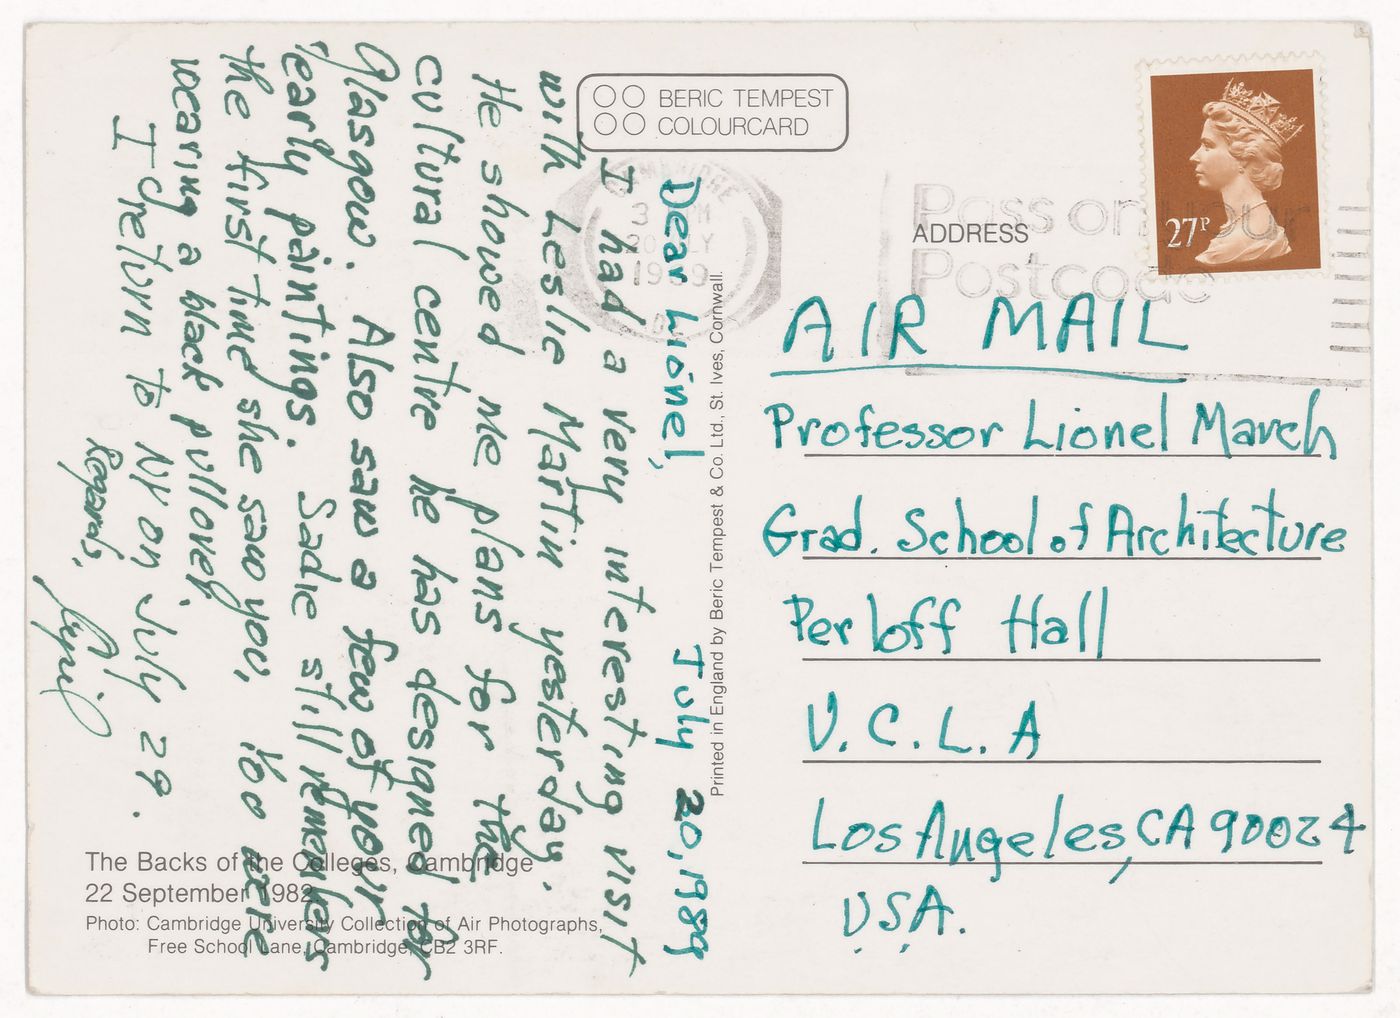 BERIC TEMPEST
COLOURCARD
Dear Lionel, July 20, 1989
I had a very interesting visit
with Leslie Martin yesterday.
He showed me plans for the
cultural centre he has designed for
Glasgow. Also saw a few of your
early paintings. Sadie still remembers
the first time she saw you, You were
wearing a black pullover.
I return to NY on July 29.
Regards,
The Backs of the Colleges, Cambridge
22 September 1982.
Photo: Cambridge University Collection of Air Photographs,
Free School Lane, Cambridge, CB2 3RF.
Printed in England by Beric Tempest & Co. Ltd., St. Ives, Cornwall.
CAMBRIDGE
20 JLY
1989
Pass on your
Postcode
27P
ADDRESS
AIR MAIL
Professor Lionel March
Grad. School of Architecture
Perloff Hall
U.C.L.A
Los Angeles, CA 90024
USA.